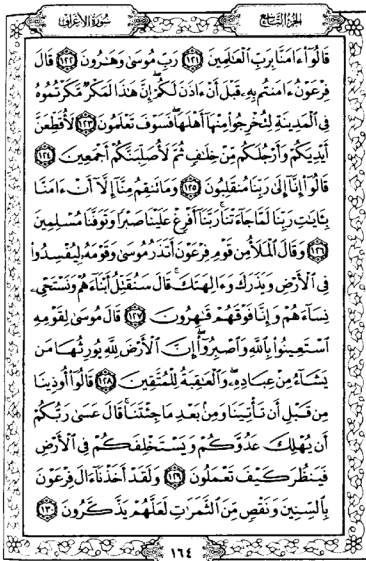 الجزء التاسع
سورة الأعراف
قَالُوٓا۟ ءَامَنَّا بِرَبِّ ٱلْعَٰلَمِينَ ١٢١ رَبِّ مُوسَىٰ وَهَٰرُونَ ١٢٢ قَالَ
فِرْعَوْنُ ءَامَنتُم بِهِۦ قَبْلَ أَنْ ءَاذَنَ لَكُمْ ۖ إِنَّ هَٰذَا لَمَكْرٌ مَّكَرْتُمُوهُ
فِى ٱلْمَدِينَةِ لِتُخْرِجُوا۟ مِنْهَآ أَهْلَهَا ۖ فَسَوْفَ تَعْلَمُونَ ١٢٣ لَأُقَطِّعَنَّ
أَيْدِيَكُمْ وَأَرْجُلَكُم مِّنْ خِلَٰفٍ ثُمَّ لَأُصَلِّبَنَّكُمْ أَجْمَعِينَ ١٢٤
قَالُوٓا۟ إِنَّآ إِلَىٰ رَبِّنَا مُنقَلِبُونَ ١٢٥ وَمَا تَنقِمُ مِنَّآ إِلَّآ أَنْ ءَامَنَّا
بِـَٔايَٰتِ رَبِّنَا لَمَّا جَآءَتْنَا ۚ رَبَّنَآ أَفْرِغْ عَلَيْنَا صَبْرًا وَتَوَفَّنَا مُسْلِمِينَ
١٢٦ وَقَالَ ٱلْمَلَأُ مِن قَوْمِ فِرْعَوْنَ أَتَذَرُ مُوسَىٰ وَقَوْمَهُۥ لِيُفْسِدُوا۟
فِى ٱلْأَرْضِ وَيَذَرَكَ وَءَالِهَتَكَ ۚ قَالَ سَنُقَتِّلُ أَبْنَآءَهُمْ وَنَسْتَحْىِۦ
نِسَآءَهُمْ وَإِنَّا فَوْقَهُمْ قَٰهِرُونَ ١٢٧ قَالَ مُوسَىٰ لِقَوْمِهِ
ٱسْتَعِينُوا۟ بِٱللَّهِ وَٱصْبِرُوٓا۟ ۖ إِنَّ ٱلْأَرْضَ لِلَّهِ يُورِثُهَا مَن
يَشَآءُ مِنْ عِبَادِهِۦ ۖ وَٱلْعَٰقِبَةُ لِلْمُتَّقِينَ ١٢٨ قَالُوٓا۟ أُوذِينَا
مِن قَبْلِ أَن تَأْتِيَنَا وَمِنۢ بَعْدِ مَا جِئْتَنَا ۚ قَالَ عَسَىٰ رَبُّكُمْ
أَن يُهْلِكَ عَدُوَّكُمْ وَيَسْتَخْلِفَكُمْ فِى ٱلْأَرْضِ
فَيَنظُرَ كَيْفَ تَعْمَلُونَ ١٢٩ وَلَقَدْ أَخَذْنَآ ءَالَ فِرْعَوْنَ
بِٱلسِّنِينَ وَنَقْصٍ مِّنَ ٱلثَّمَرَٰتِ لَعَلَّهُمْ يَذَّكَّرُونَ ١٣٠
١٦٤